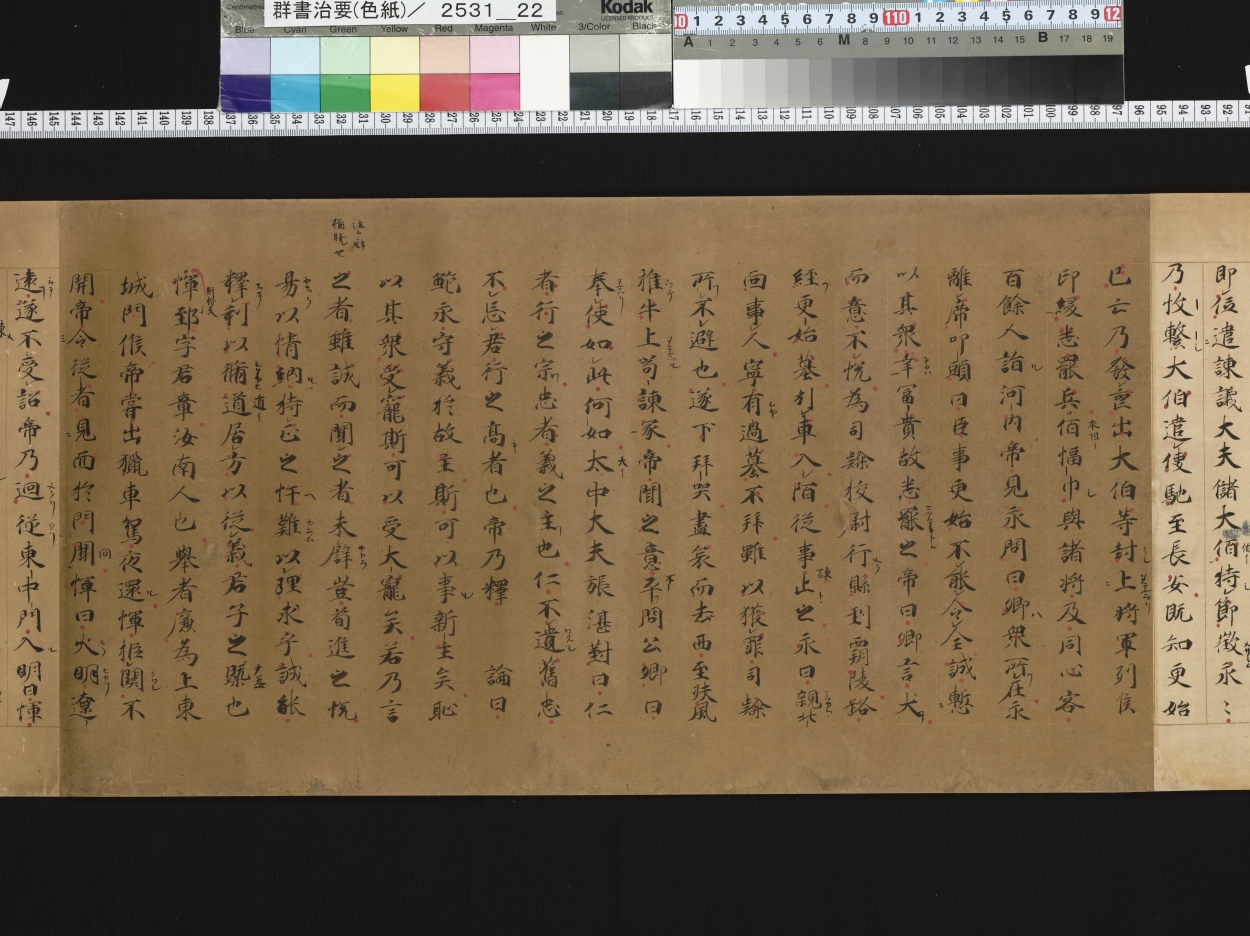 群書治要(色紙)／ 2531__22
Kodak
即位遣諫議大夫儲大伯持節徴永〻
乃牧繫大伯遣使馳至長安既知更始
已亡乃發喪出大伯等封上将軍列侯
印綬悉罷兵伯幅巾與諸将及同心客
百餘人詣河内帝見永問曰卿衆所在永
離席叩頭曰臣事更始不能令全誠慙
以其衆幸冨貴故悉罷之帝曰卿言大
而意不悦為司隸校尉行縣到霸陵路
經更始墓引車入陌従事止之永曰親北
面事人寧有過墓不拜雖以獲罪司隸
所不避也遂下拜哭盡哀而去西至扶風
椎牛上苟諫冢帝聞之意不平問公卿曰
奉使如此何如太中大夫張湛對曰仁
者行之宗忠者義之主也仁不遺舊忠
不忘君行之髙者也帝乃釋　論曰
鮑永守義於故主斯可以事新主矣恥
以其衆受寵斯可以受大寵矣若乃言
之者雖誠而聞之者未辟豈苟進之悦
易以情納持正之忤難以理求乎誠能
釋利以循道居方以従義君子之槩也
惲郅字君章汝南人也舉孝廉為上東
城門候帝甞出獵車駕夜還惲拒關不
開帝令従者見面於門閒惲曰火明遼
遠遂不受詔帝乃迴従東中門入明日惲